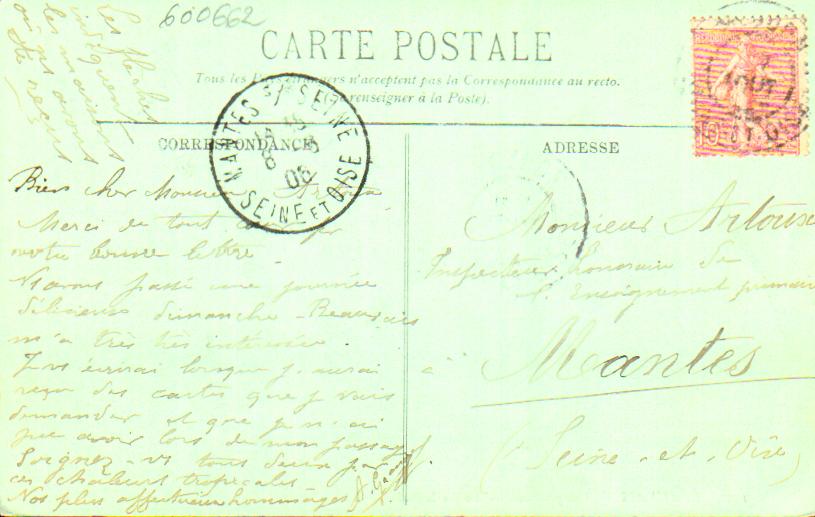 600662
Les flèches
indiquent
les maisons
où ns avons
été reçus
CARTE POSTALE
Tous les Pays étrangers n'acceptent pas la Correspondance au recto.
renseigner à la Poste).
CORRESPONDANCE
MANTES S/ SEINE
SEINE ET OISE
06
Bien cher Monsieur
Merci de tout
votre bonne lettre.
Ns avons passé une journée
délicieuse dimanche - Beauvais
m'a très très intéressée.
Je vs écrirai lorsque j'aurai
reçu des cartes que je vais
demander et que je n'ai
pu avoir lors de mon passage.
Soignez-vs tous deux par
ces chaleurs tropicales.
Nos plus affectueux hommages
ADRESSE
Monsieur Artouse
Inspecteur honoraire de
l'Enseignement primaire
à Mantes
(Seine-et-Oise)
10
AOUT